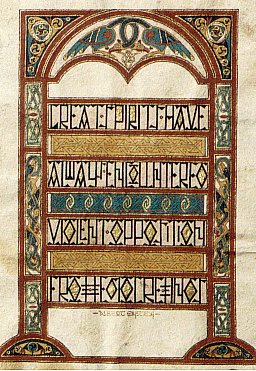 GREAT SPIRITS HAVE
ALWAYS ENCOUNTERED
VIOLENT OPPOSITION
FROM MEDIOCRE MINDS